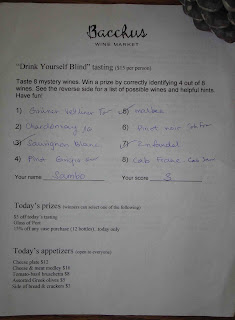 Bacchus
WINE MARKET
"Drink Yourself Blind" tasting ($15 per person)
Taste 8 mystery wines. Win a prize by correctly identifying 4 out of 8
wines. See the reverse side for a list of possible wines and helpful hints.
Have fun!
1) 5) malbec
2) Chardonnay 6) Pinot noir
3) Sauvignon Blanc 7) Zinfandel
4) Pinot Grigio 8) Cab Franc
Your name Sambo Your score 3
Today's prizes (winners can select one of the following)
$5 off today's tasting
Glass of Port
15% off any own purchase (12 bottles) today only
Today's appetizers (open to everyone)
Cheese plate $12
Cheese & meat medley $16
Tomato-basil bruschetta $8
Assorted Greek olives $5
Side of bread & crackers $3